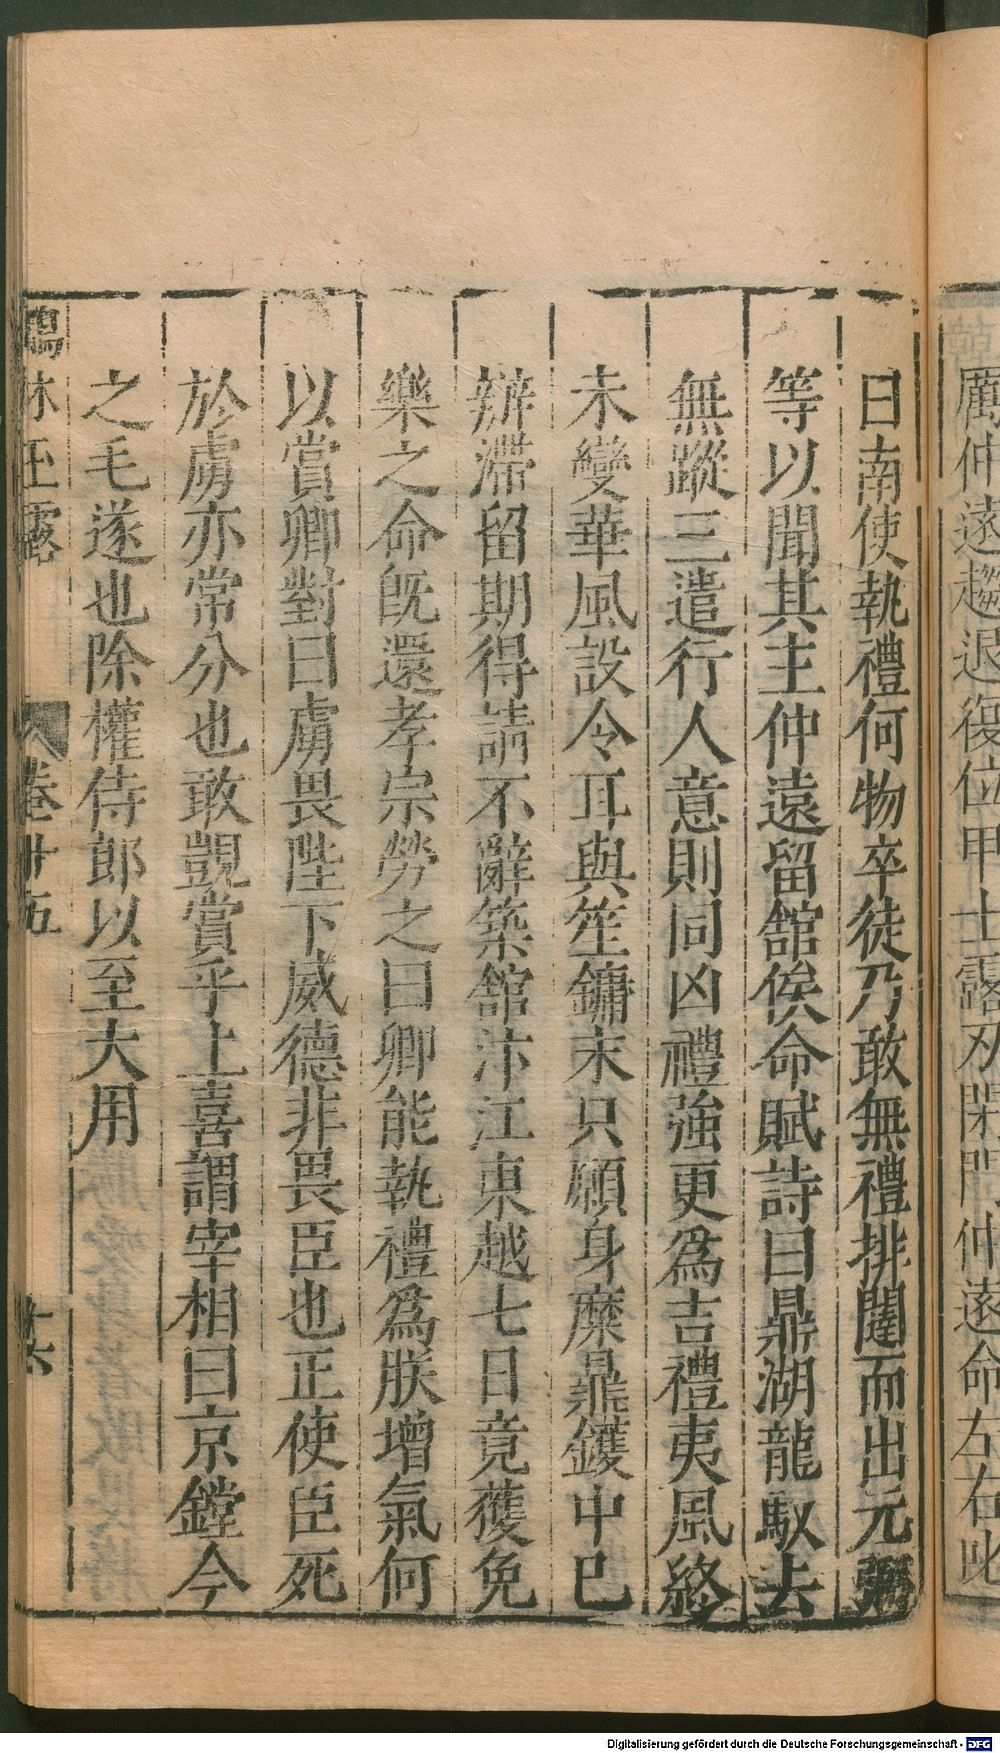 厲仲遠趨退復位甲士露刃閉門仲遠命左右叱
曰南使執禮何物卒徒乃敢無禮排闥而出元弼
等以聞其主仲遠留舘俟命賦詩曰鼎湖龍馭去
無蹤三遣行人意則同凶禮強更爲吉禮夷風終
未變華風設令耳與笙鏞末只願身糜鼎鑊中已
辦滯留期得請不辭築舘汴江東越七日竟獲免
樂之命旣還孝宗勞之曰卿能執禮爲朕增氣何
以賞卿對曰虜畏陛下威德非畏臣也正使臣死
於虜亦常分也敢覬賞乎上喜謂宰相曰京鏜今
之毛遂也除權侍郎以至大用
鶴林玉露 卷廿五 廿六
Digitalisierung gefördert durch die Deutsche Forschungsgemeinschaft - DFG